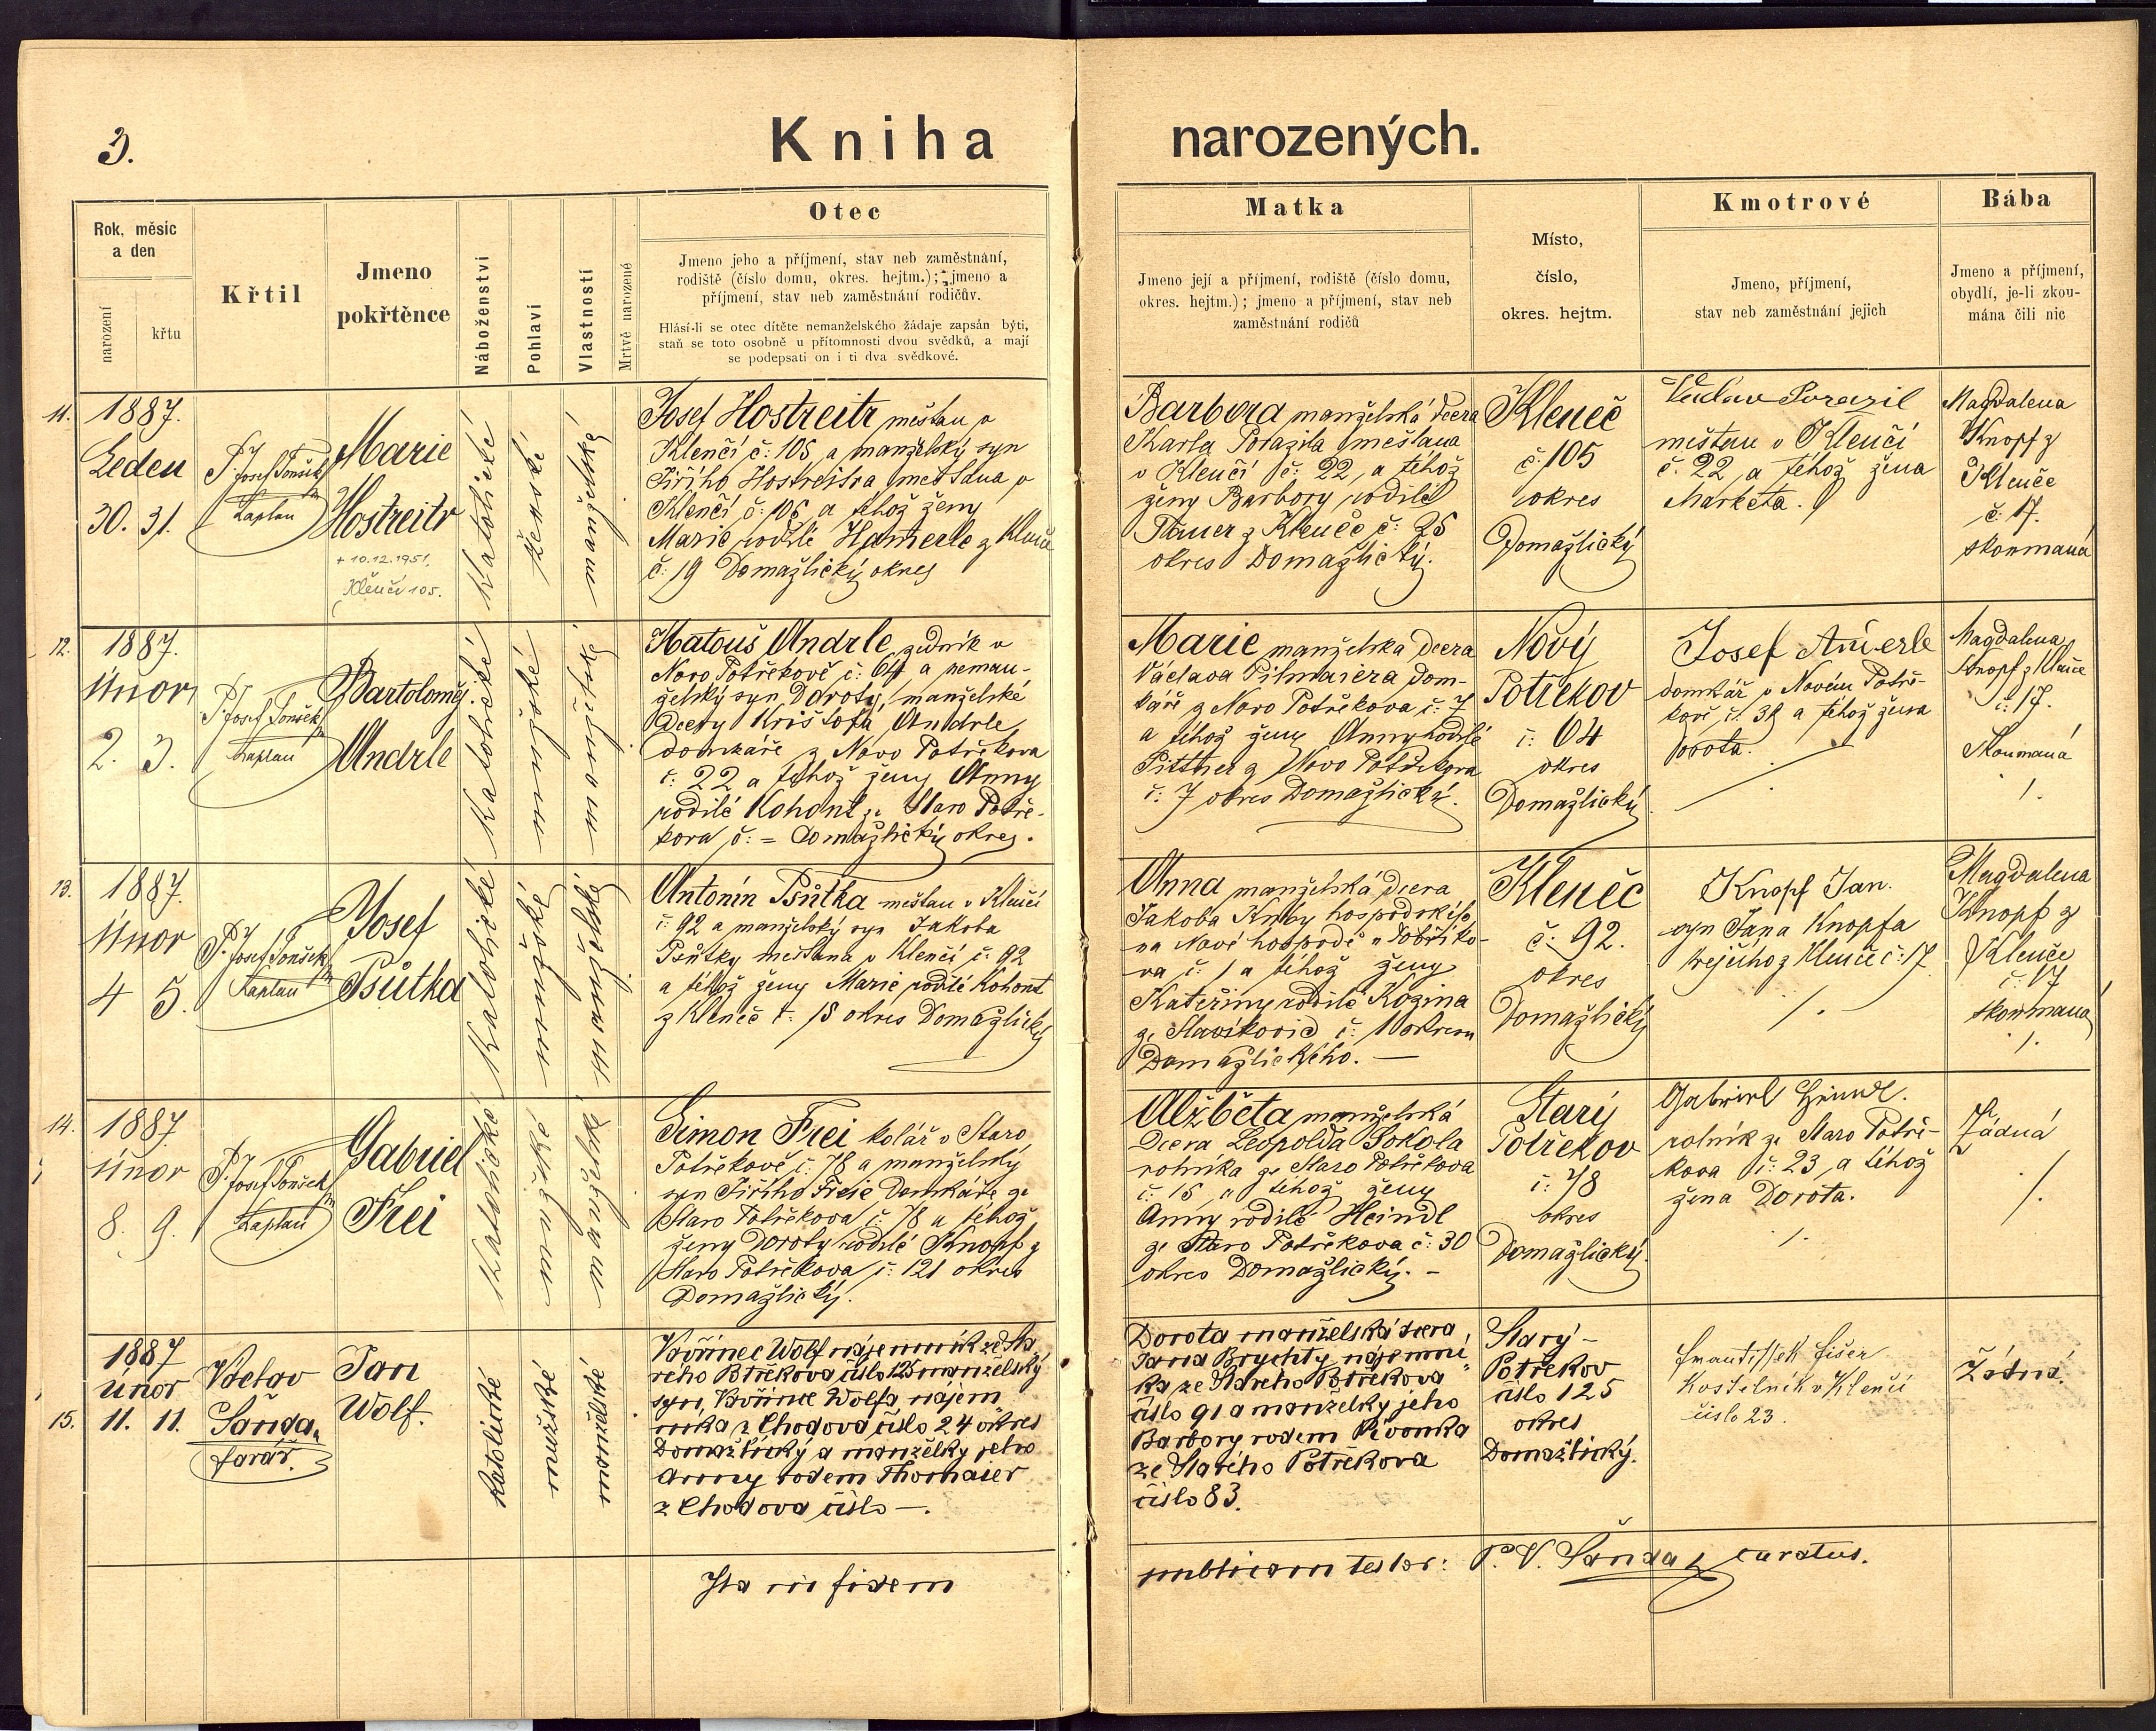 3.
Kniha narozených.
Rok, měsíc
a den
narození
křtu
Křtil
Jmeno
pokřtěnce
Náboženství
Pohlaví
Vlastností
Mrtvě narozené
Otec
Jmeno jeho a příjmení, stav neb zaměstnání,
rodiště (číslo domu, okres. hejtm.); jmeno a
příjmení, stav neb zaměstnání rodičův.
Hlásí-li se otec dítěte nemanželského žádaje zapsán býti,
staň se toto osobně u přítomnosti dvou svědků, a mají
se podepsati on i ti dva svědkové.
Matka
Jmeno její a příjmení, rodiště (číslo domu,
okres. hejtm.); jmeno a příjmení, stav neb
zaměstnání rodičů
Místo,
číslo,
okres. hejtm.
Kmotrové
Jmeno, příjmení,
stav neb zaměstnání jejich
Bába
Jmeno a příjmení,
obydlí, je-li zkou-
mána čili nic
11.
1887.
Leden
30. 31.
P. Josef Tonšek
Kaplan
Marie
Hostreitr
+ 10.12.1951,
Klenčí 105.
Katolické
ženské
manželské
Josef Hostreitr měštan v
Klenčí č: 105 a manželský syn
Jiřího Hostreitra měštana v
Klenčí č: 106 a téhož ženy
Marie rodilé Hamerle z Klenče
č: 19 Domažlický okres
Barbora manželská dcera
Karla Porazila měštana
v Klenčí č: 22, a téhož
ženy Barbory rodilé
z Klenče č: 25
okres Domažlický.
Kleneč
č: 105
okres
Domažlický
Václav Porazil
měštan v Klenčí
č. 22, a téhož žena
Markéta.
Magdalena
Knopf z
Klenče
č: 17.
skoumaná
12.
1887.
únor
2. 3.
P. Josef Tonšek
Kaplan
Bartoloměj.
Andrle
Katolické
mužské
manželské
Matouš Andrle, zedník v
Novo Potřekově č: 64 a neman-
želský syn Doroty, manželské
dcery Krištofa Andrle,
domkáře z Novo Potřekova
č. 22 a téhož ženy Anny
rodilé Kohout ze Staro Potře-
kova č: = Domažlický okres.
Marie manželská dcera
Václava Pilmaiera dom-
káře z Novo Potřekova č: 7
a téhož ženy Anny rodilé
Pittner z Novo Potřekova
č: 7 okres Domažlický.
Nový
Potřekov
č: 64
okres
Domažlický
Josef
domkář v Novém Potře-
kově č. 38 a téhož žena
Dorota.
Magdalena
Knopf z Klenče
č: 17.
Skoumaná
13.
1887.
únor
4 5.
P. Josef Tonšek
Kaplan
Josef
Psůtka
Katolické
mužské
manželské
Antonín Psůtka měštan v Klenčí
č: 92 a manželský syn Jakoba
Psůtky měštana v Klenčí č: 92
a téhož ženy Marie rodilé Kohout
z Kleneč č: 18 okres Domažlický
Anna manželská dcera
Jakoba
na Nové hospodě
va č: 1 a téhož ženy
Kateřiny rodilé Kozina
ze č: 1 okresu
Domažlického. —
Kleneč
č: 92.
okres
Domažlický
Knopf Jan.
syn Jana Knopfa
krejčího z Klenče č: 17.
Magdalena
Knopf z
Klenče
č: 17
skoumaná
14.
1887.
únor
8. 9.
P. Josef Tonšek
Kaplan
Gabriel
Frei
Katolické
mužské
manželské
Simon Frei kolář v Staro
Potřekově č. 78 a manželský
syn Jiřího Freie Domkáře ze
Staro Potřekova č: 78 a téhož
ženy Doroty rodilé Knopf z
Staro Potřekova č: 121 okres
Domažlický.
Alžběta manželská
Dcera Leopolda Sokola
rolníka ze Staro Potřekova
č: 15 a téhož ženy
Anny rodilé Heindl
ze Staro Potřekova č: 30
okres Domažlický. -
Starý
Potřekov
č: 78
okres
Domažlický.
Gabriel Heindl.
rolník ze Staro Potře-
kova č: 23, a téhož
žena Dorota.
Žádná
15.
1887
únor
11. 11.
Václav
Šanda,
farář.
Jan
Wolf.
Katolické
mužské
manželské
Vavřinec Wolf nájemník ze Sta
rého Potřekova číslo 125 manželský
syn, Vavřince Wolfa, nájem
níka z Chodova číslo 24 okres
Domažlický a manželky jeho
Anny rodem Thomaier
z Chodova číslo —.
Dorota manželská dcera
Jana Brychty nájemní
ka ze Starého Potřekova
číslo 91 a manželky jeho
Barbory rodem Pivonka
ze Starého Potřekova
číslo 83.
Starý -
Potřekov
číslo 125
okres
Domažlický.
František Fišer
Kostelník v Klenčí
číslo 23.
Žádná.
Ita in fidem publicam testor: P. V. Šanda, curatus.